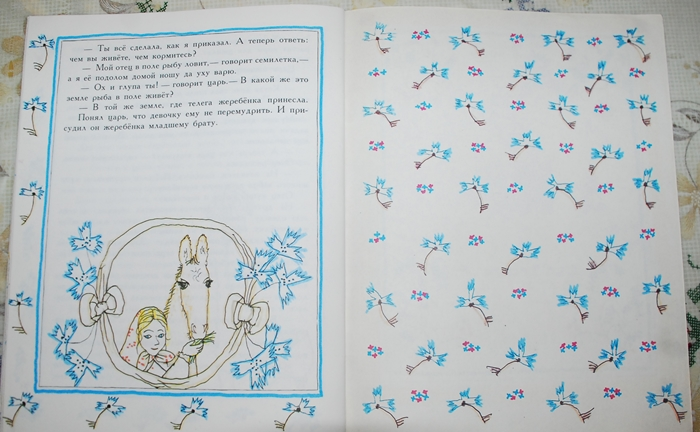 — Ты всё сделала, как я приказал. А теперь ответь:
чем вы живёте, чем кормитесь?
— Мой отец в поле рыбу ловит,— говорит семилетка,—
а я её подолом домой ношу да уху варю.
— Ох и глупа ты! — говорит царь.— В какой же это
земле рыба в поле живёт?
— В той же земле, где телега жеребёнка принесла.
Понял царь, что девочку ему не перемудрить. И при-
судил он жеребёнка младшему брату.